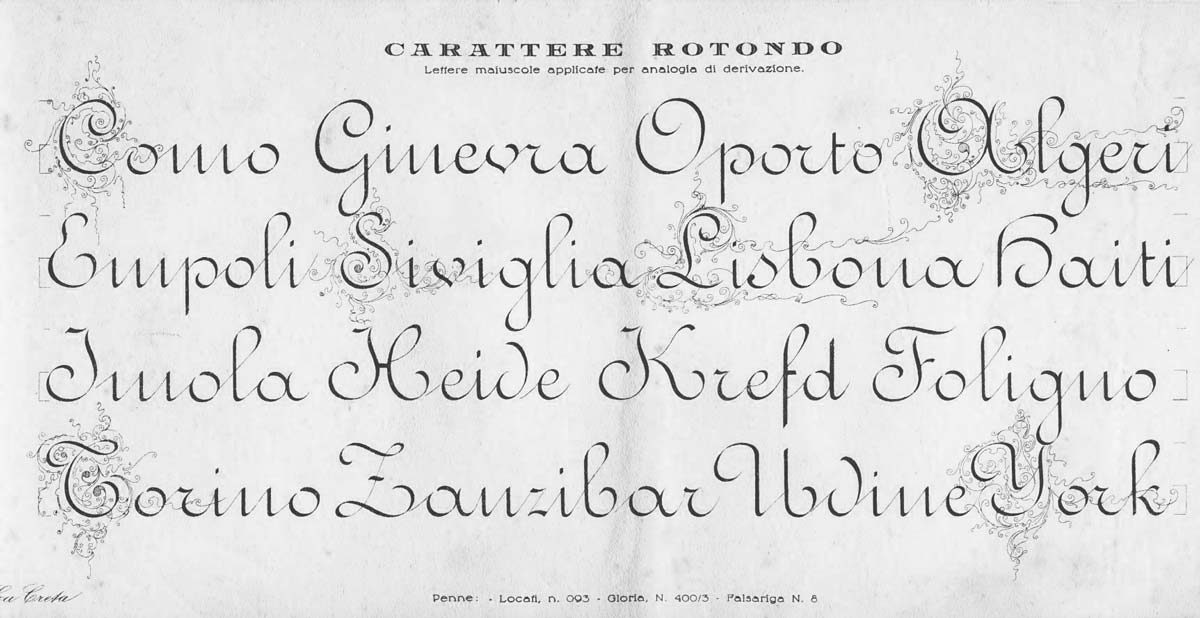 CARATTERE ROTONDO
Lettere maiuscole applicate per analogia di derivazione.
Como Ginevra Oporto Algeri
Empoli Siviglia Lisbona Haiti
Imola Heide Krefd Foligno
Torino Zanzibar Udine York
Creta
Penne: - Locati, n. 093 - Gloria, N. 400/3 - Falsariga N. 8